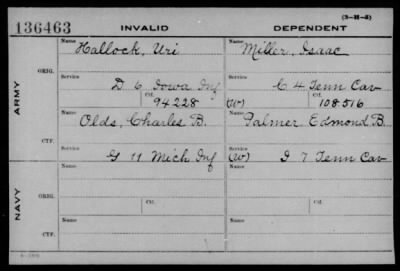 (3-H-3)
136463 INVALID DEPENDENT
Name Name
Hallock, Uri Miller, Isaac
ORIG.
Service Service
D 6 Iowa Inf C 4 Tenn Cav
ARMY
Ctf. Ctf.
94228 (W) 108516
Name Name
Olds, Charles B. Palmer, Edmond B.
CTF.
Service Service
G 11 Mich Inf (W) I 7 Tenn Cav
Name Name
ORIG.
NAVY
Ctf. Ctf.
Name Name
CTF.